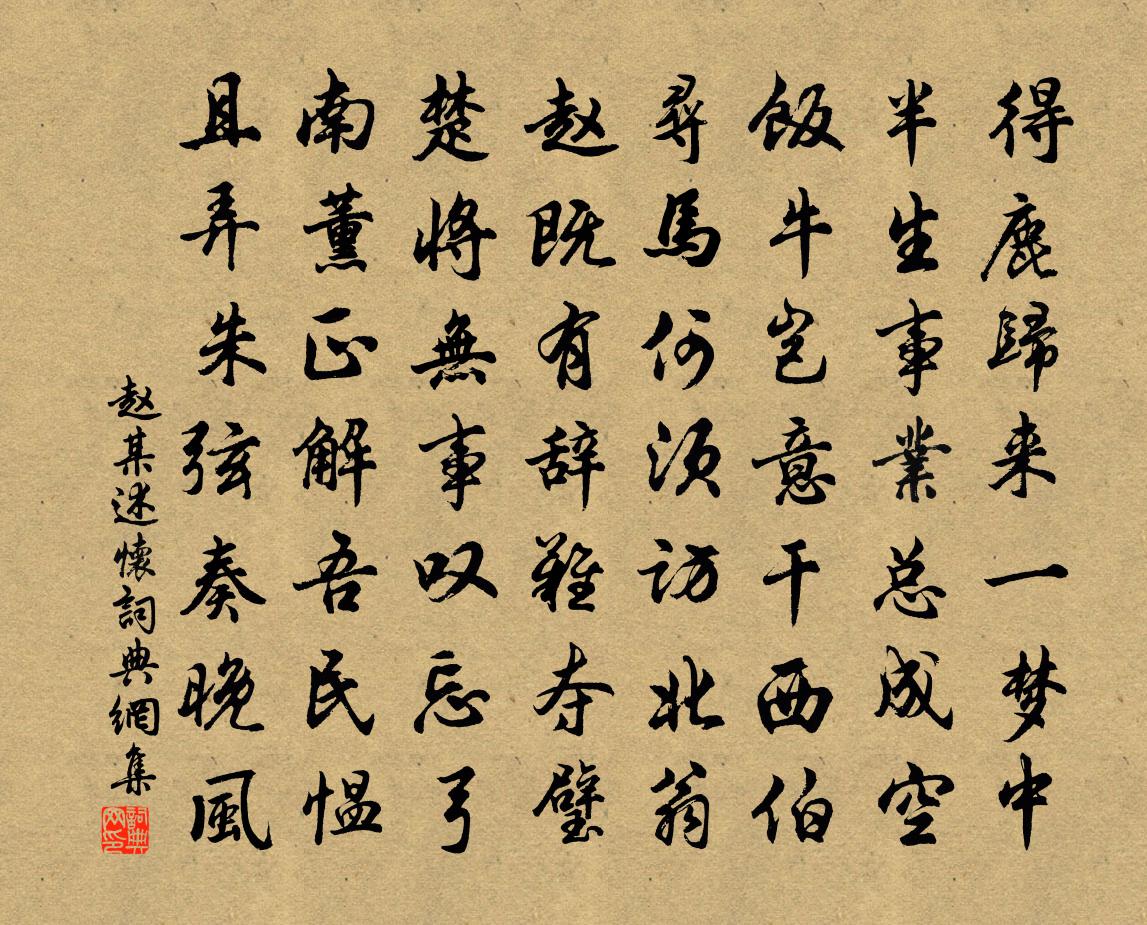 得鹿歸来一梦中
半生事業总成空
飯牛岂意干西伯
尋馬何须访北翁
赵既有辞難夺璧
楚将無事叹忘弓
南薰正解吾民愠
且弄朱弦奏晚風
赵某述懷詞典網集
詞典网印